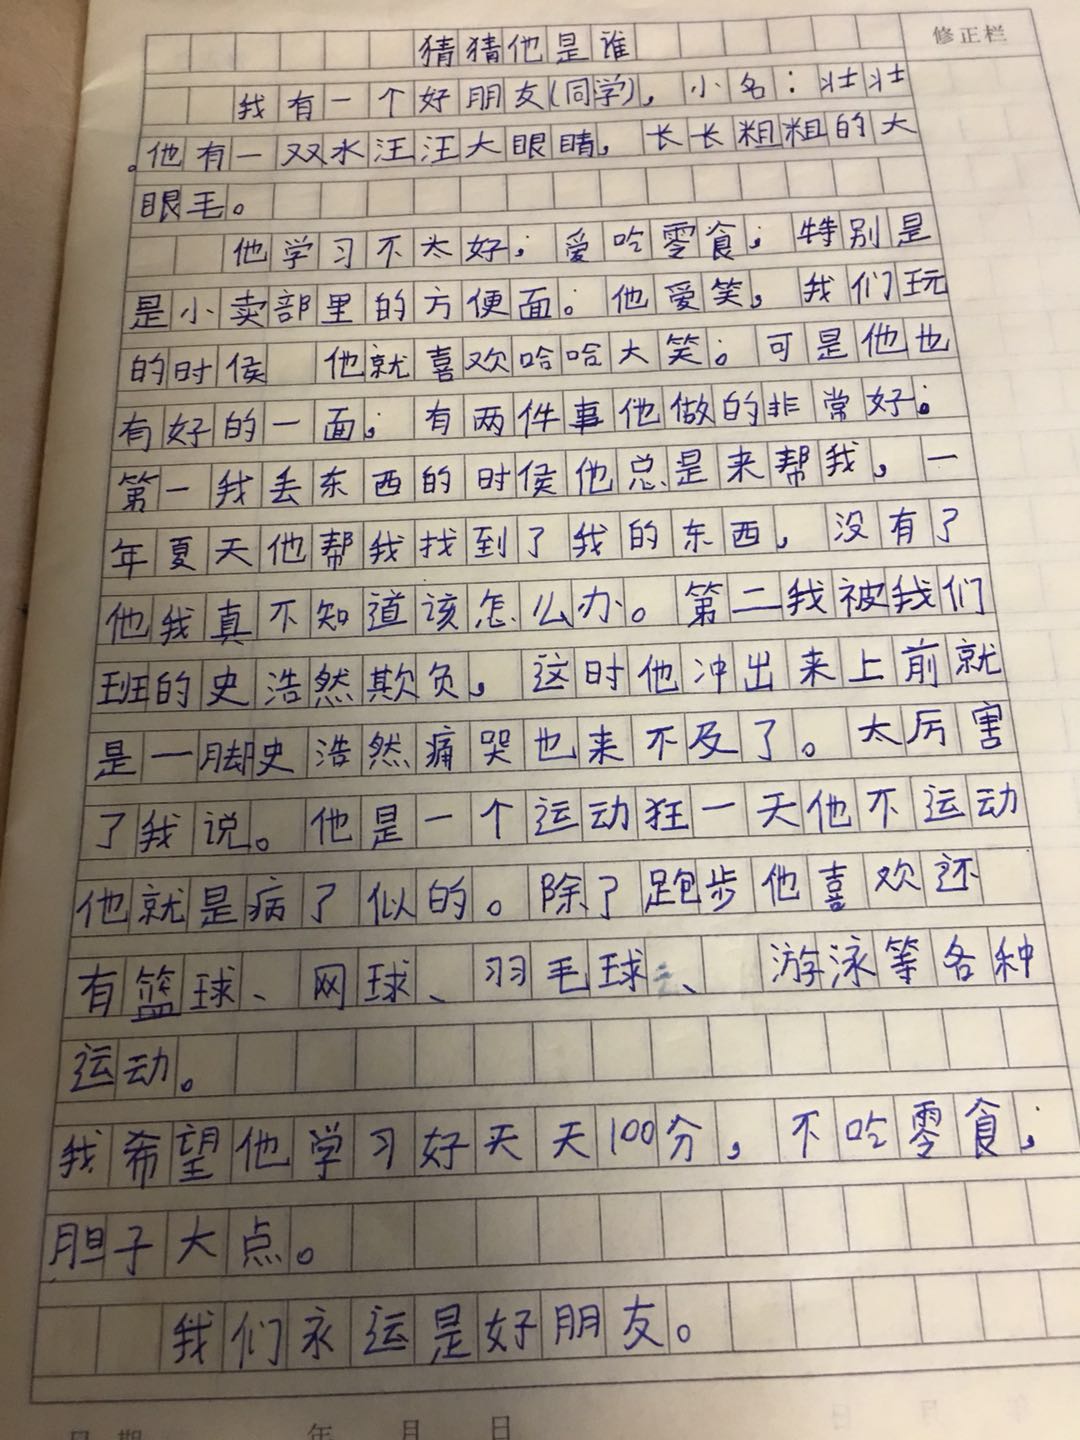 猜猜他是谁
修正栏
我有一个好朋友(同学)，小名：壮壮
。他有一双水汪汪大眼睛，长长粗粗的大
眼毛。
他学习不太好，爱吃零食，特别是
是小卖部里的方便面。他爱笑，我们玩
的时侯 他就喜欢哈哈大笑。可是他也
有好的一面，有两件事他做的非常好。
第一我丢东西的时侯他总是来帮我，一
年夏天他帮我找到了我的东西，没有了
他我真不知道该怎么办。第二我被我们
班的史浩然欺负，这时他冲出来上前就
是一脚史浩然痛哭也来不及了。太厉害
了我说。他是一个运动狂一天他不运动
他就是病了似的。除了跑步他喜欢还
有篮球、网球、羽毛球、游泳等各种
运动。
我希望他学习好天天100分，不吃零食，
胆子大点。
我们永运是好朋友。
日期 年 月 日